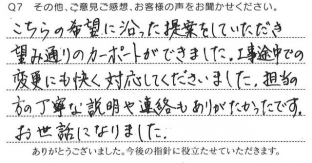 Q7 その他、ご意見ご感想、お客様の声をお聞かせください。
こちらの希望に沿った提案をしていただき
望み通りのカーポートができました。工事途中での
変更にも快く対応してくださいました。担当の
方の丁寧な説明や連絡もありがたかったです。
お世話になりました。
ありがとうございました。今後の指針に役立たせていただきます。